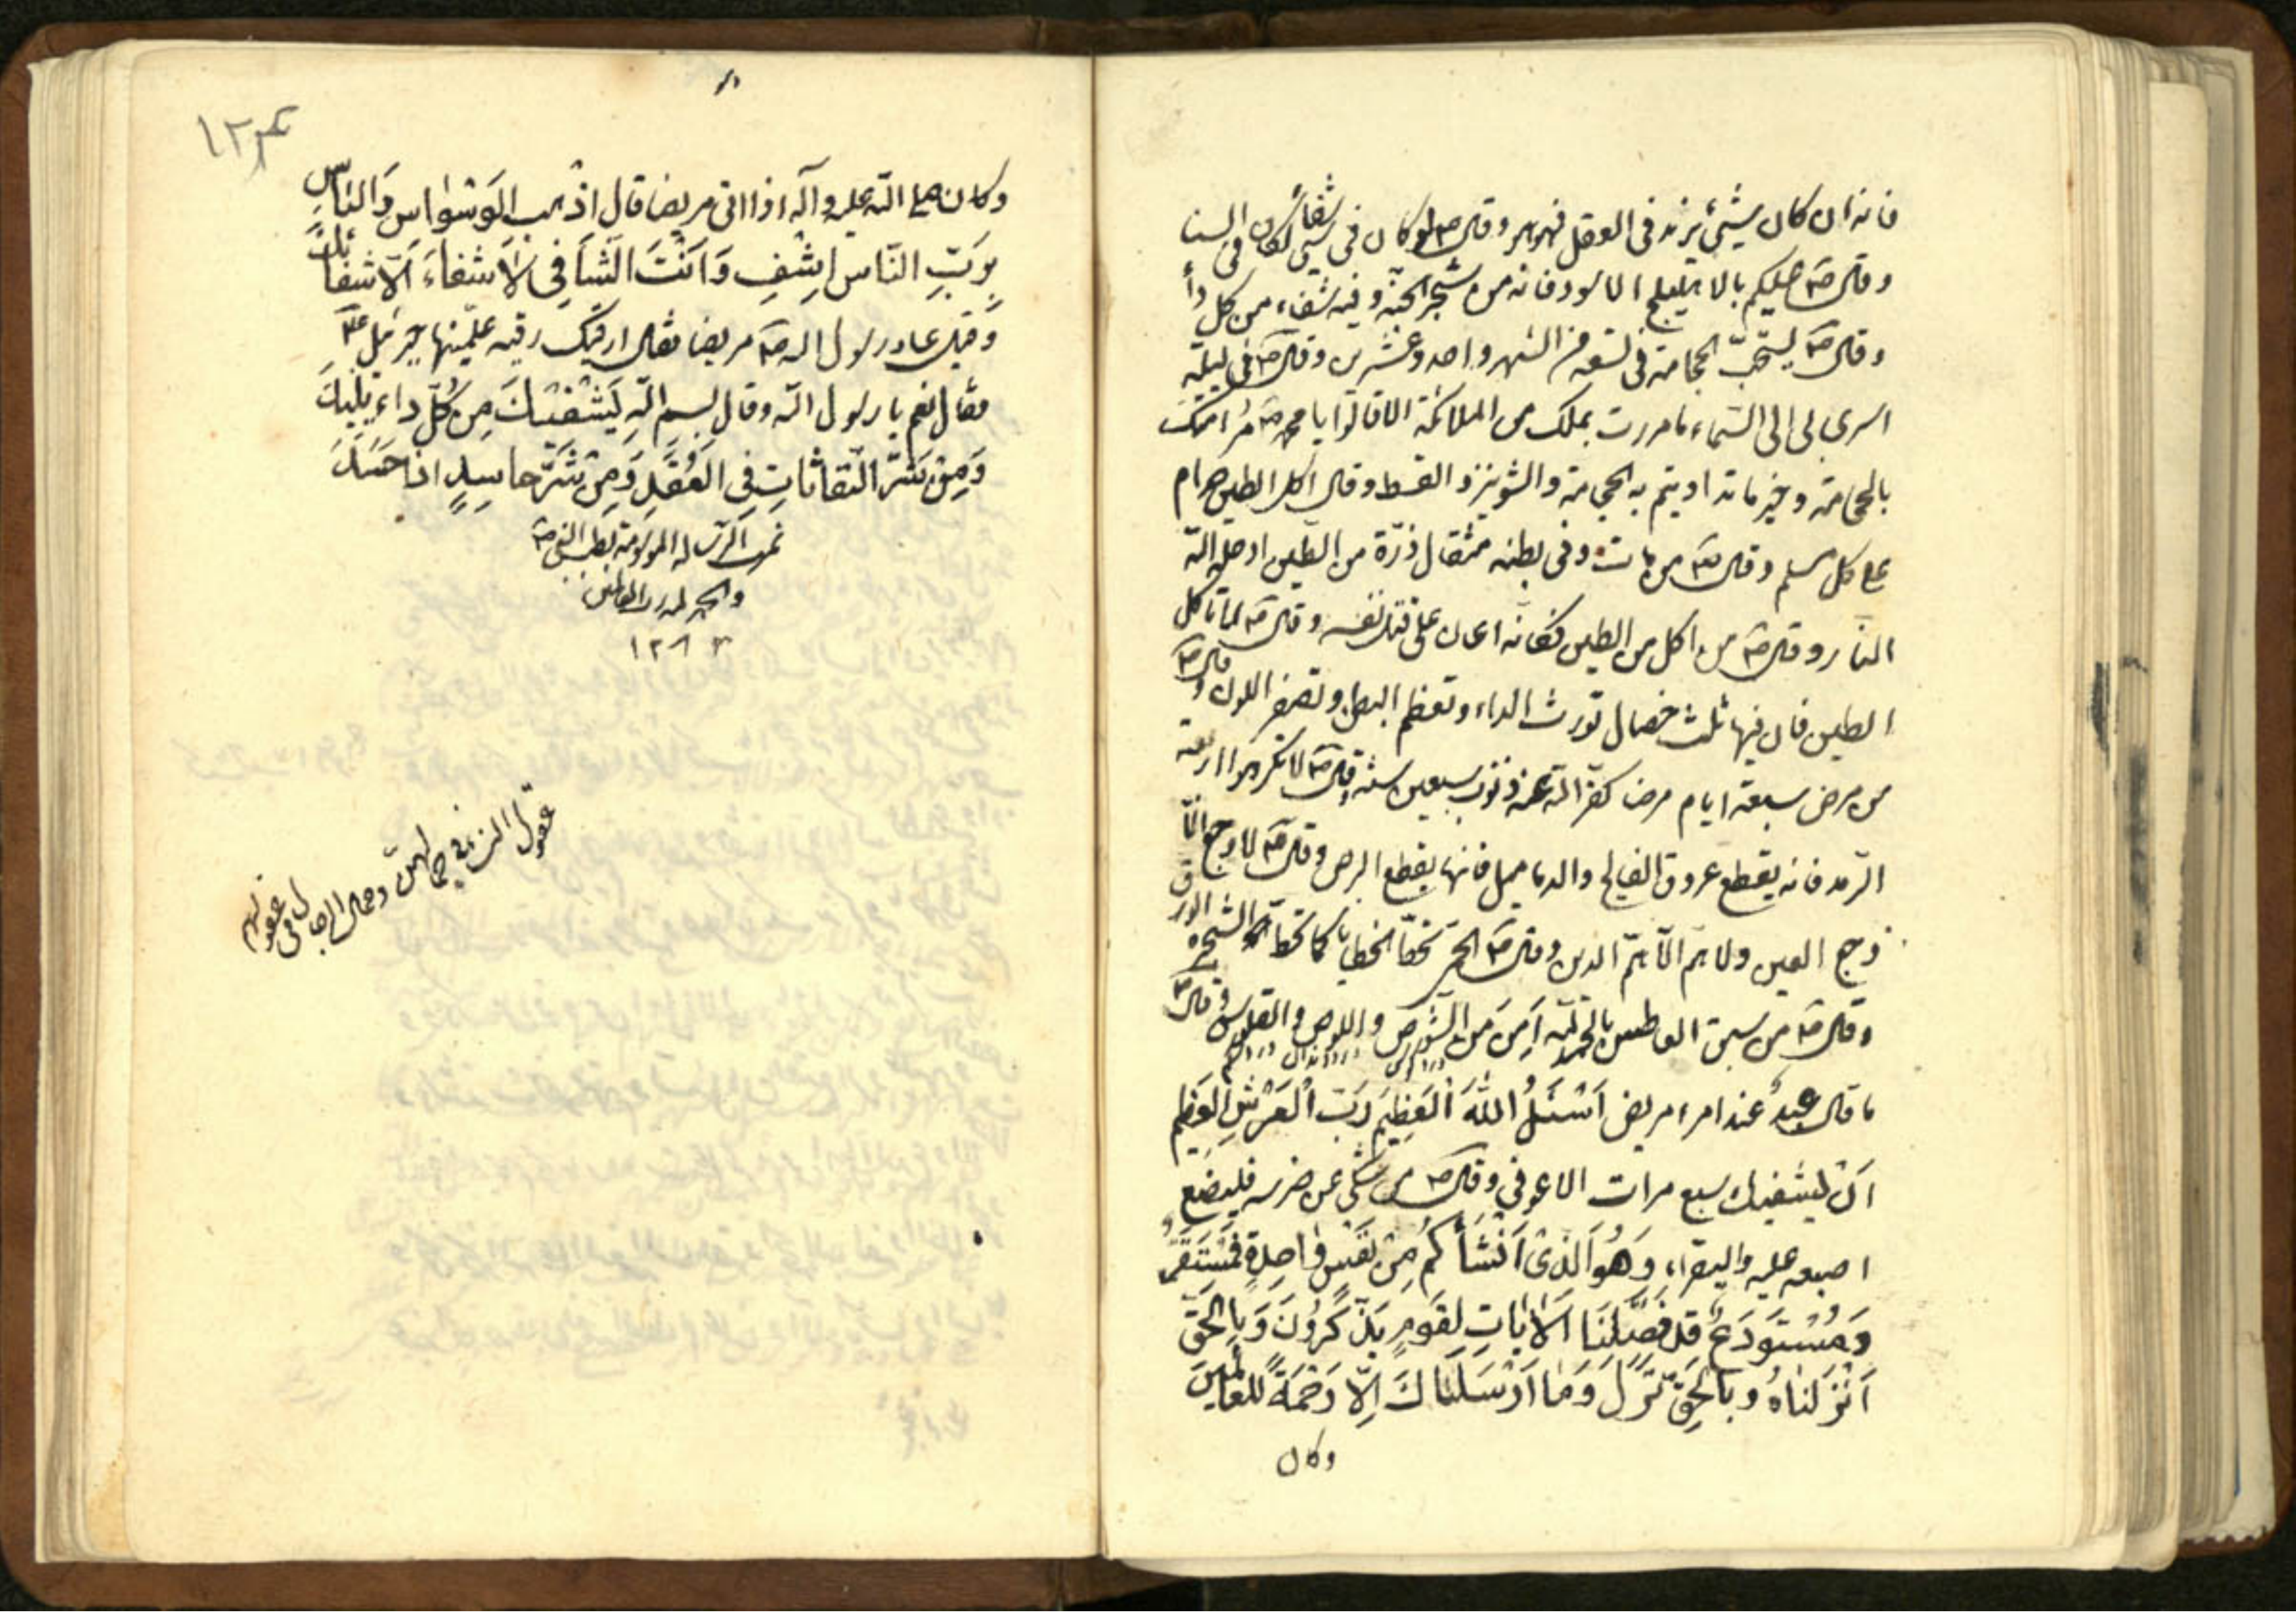 فانه ان كان شيئ يزيد فى العقل فهو هو وقال ص لو كان فى شيئ شفاءً لكان فى السنا
وقال صۀ عليكم بالاهليلج الاسود فانه من شجر الجنّة وفيه شفاء من كل دأ
وقال صۀ يستحبّ الحجامة فى تسعه من الشهر واحد وعشرين وقال صۀ فى ليلة
اسرى بى الى السّماء ما مررت بملك من الملائكة الا قالوا يا محمد صۀ مُر امتك
بالحجامة وخير ما تداويتم به الحجامة والشونيز والقسط وقال اكل الطين حرام
على كل مسلم وقال صۀ من مات وفى بطنه مثقال ذرّة من الطين ادخله اللّه
النار وقال صۀ من اكل من الطين فكانه اعان على قتل نفسه وقال صۀ لا تاكل
الطين فان فيها ثلث خصال تورث الداء وتعظم البطن وتصفر اللون وقال صۀ
من مرض سبعة ايام مرضا كفّر اللّه عنه ذنوب سبعين سنة وقال صۀ لا تكرهوا اربعة
الرّمد فانه يقطع عروق والدماميل فانها يقطع البرص وقال صۀ لا وجع الّا
وجع العين ولا همّ الّا همّ الدين وقال صۀ الحمى تحطّ الخطايا كما تحطّ الشجرة الورق
وقال صۀ من سبق العاطس بالحمد للّه اَمِنَ من الشوص واللوص والعلوص وقال صۀ
ما قال عبدٌ عند امرء مريض اَسْئَلُ اللّٰهَ الْعَظِيمَ رَبّ الْعَرْشِ الْعَظِيم
اَنْ يَشْفِيَك سبع مرات الا عوفى وقال صۀ من شكى من ضرسه فليضع
اصبعه عليه واليقراء وَهُوَ الَّذِى اَنْشَأَكُمْ مِنْ نَفْسٍ وٰاحِدَةٍ فَمُسْتَقَرٌّ
وَمُسْتَوْدَعٌ قَدْ فَصَّلْنَا الْاٰيٰاتِ لِقَوْمٍ يَذَّكَّرُونَ وَبِالْحَقِّ
اَنْزَلْنٰاهُ وَبِالْحَقِّ نَزَلَ وَمٰا اَرْسَلْنٰاكَ اِلّٰا رَحْمَةً لِلْعٰالَمِينَ
وكان
وكان صلى اللّه عليه وآله اذا اتى مريضا قال اذْهِبِ الوَسْوٰاسَ وَالبَأسَ
رَبِّ النّاس اِشْفِ وَاَنْتَ الشّافِى لاٰ شِفٰاءَ اِلّاٰ شِفٰائُكَ
وقيل عاد رسول اللّه صۀ مريضا فقال ارقيك رقيه علّمنيها جبرئيل عۀ
فقال نعم يا رسول اللّه وقال بسم اللّه يَشْفِيكَ مِنْ كُلِّ داءٍ يَأتِيكَ
وَمِنْ شَرِّ النَّفّاثٰاتِ فِى الْعُقَدِ وَمِنْ شَرِّ حٰاسِدٍ اِذٰا حَسَدَ
تمت الرسالة الموسومة بطب النبى صۀ
والحمد للّه رب العالمين
۱۲۸۳
عقول النساء فى جمالهن وجمال الرجال فى عقولهم